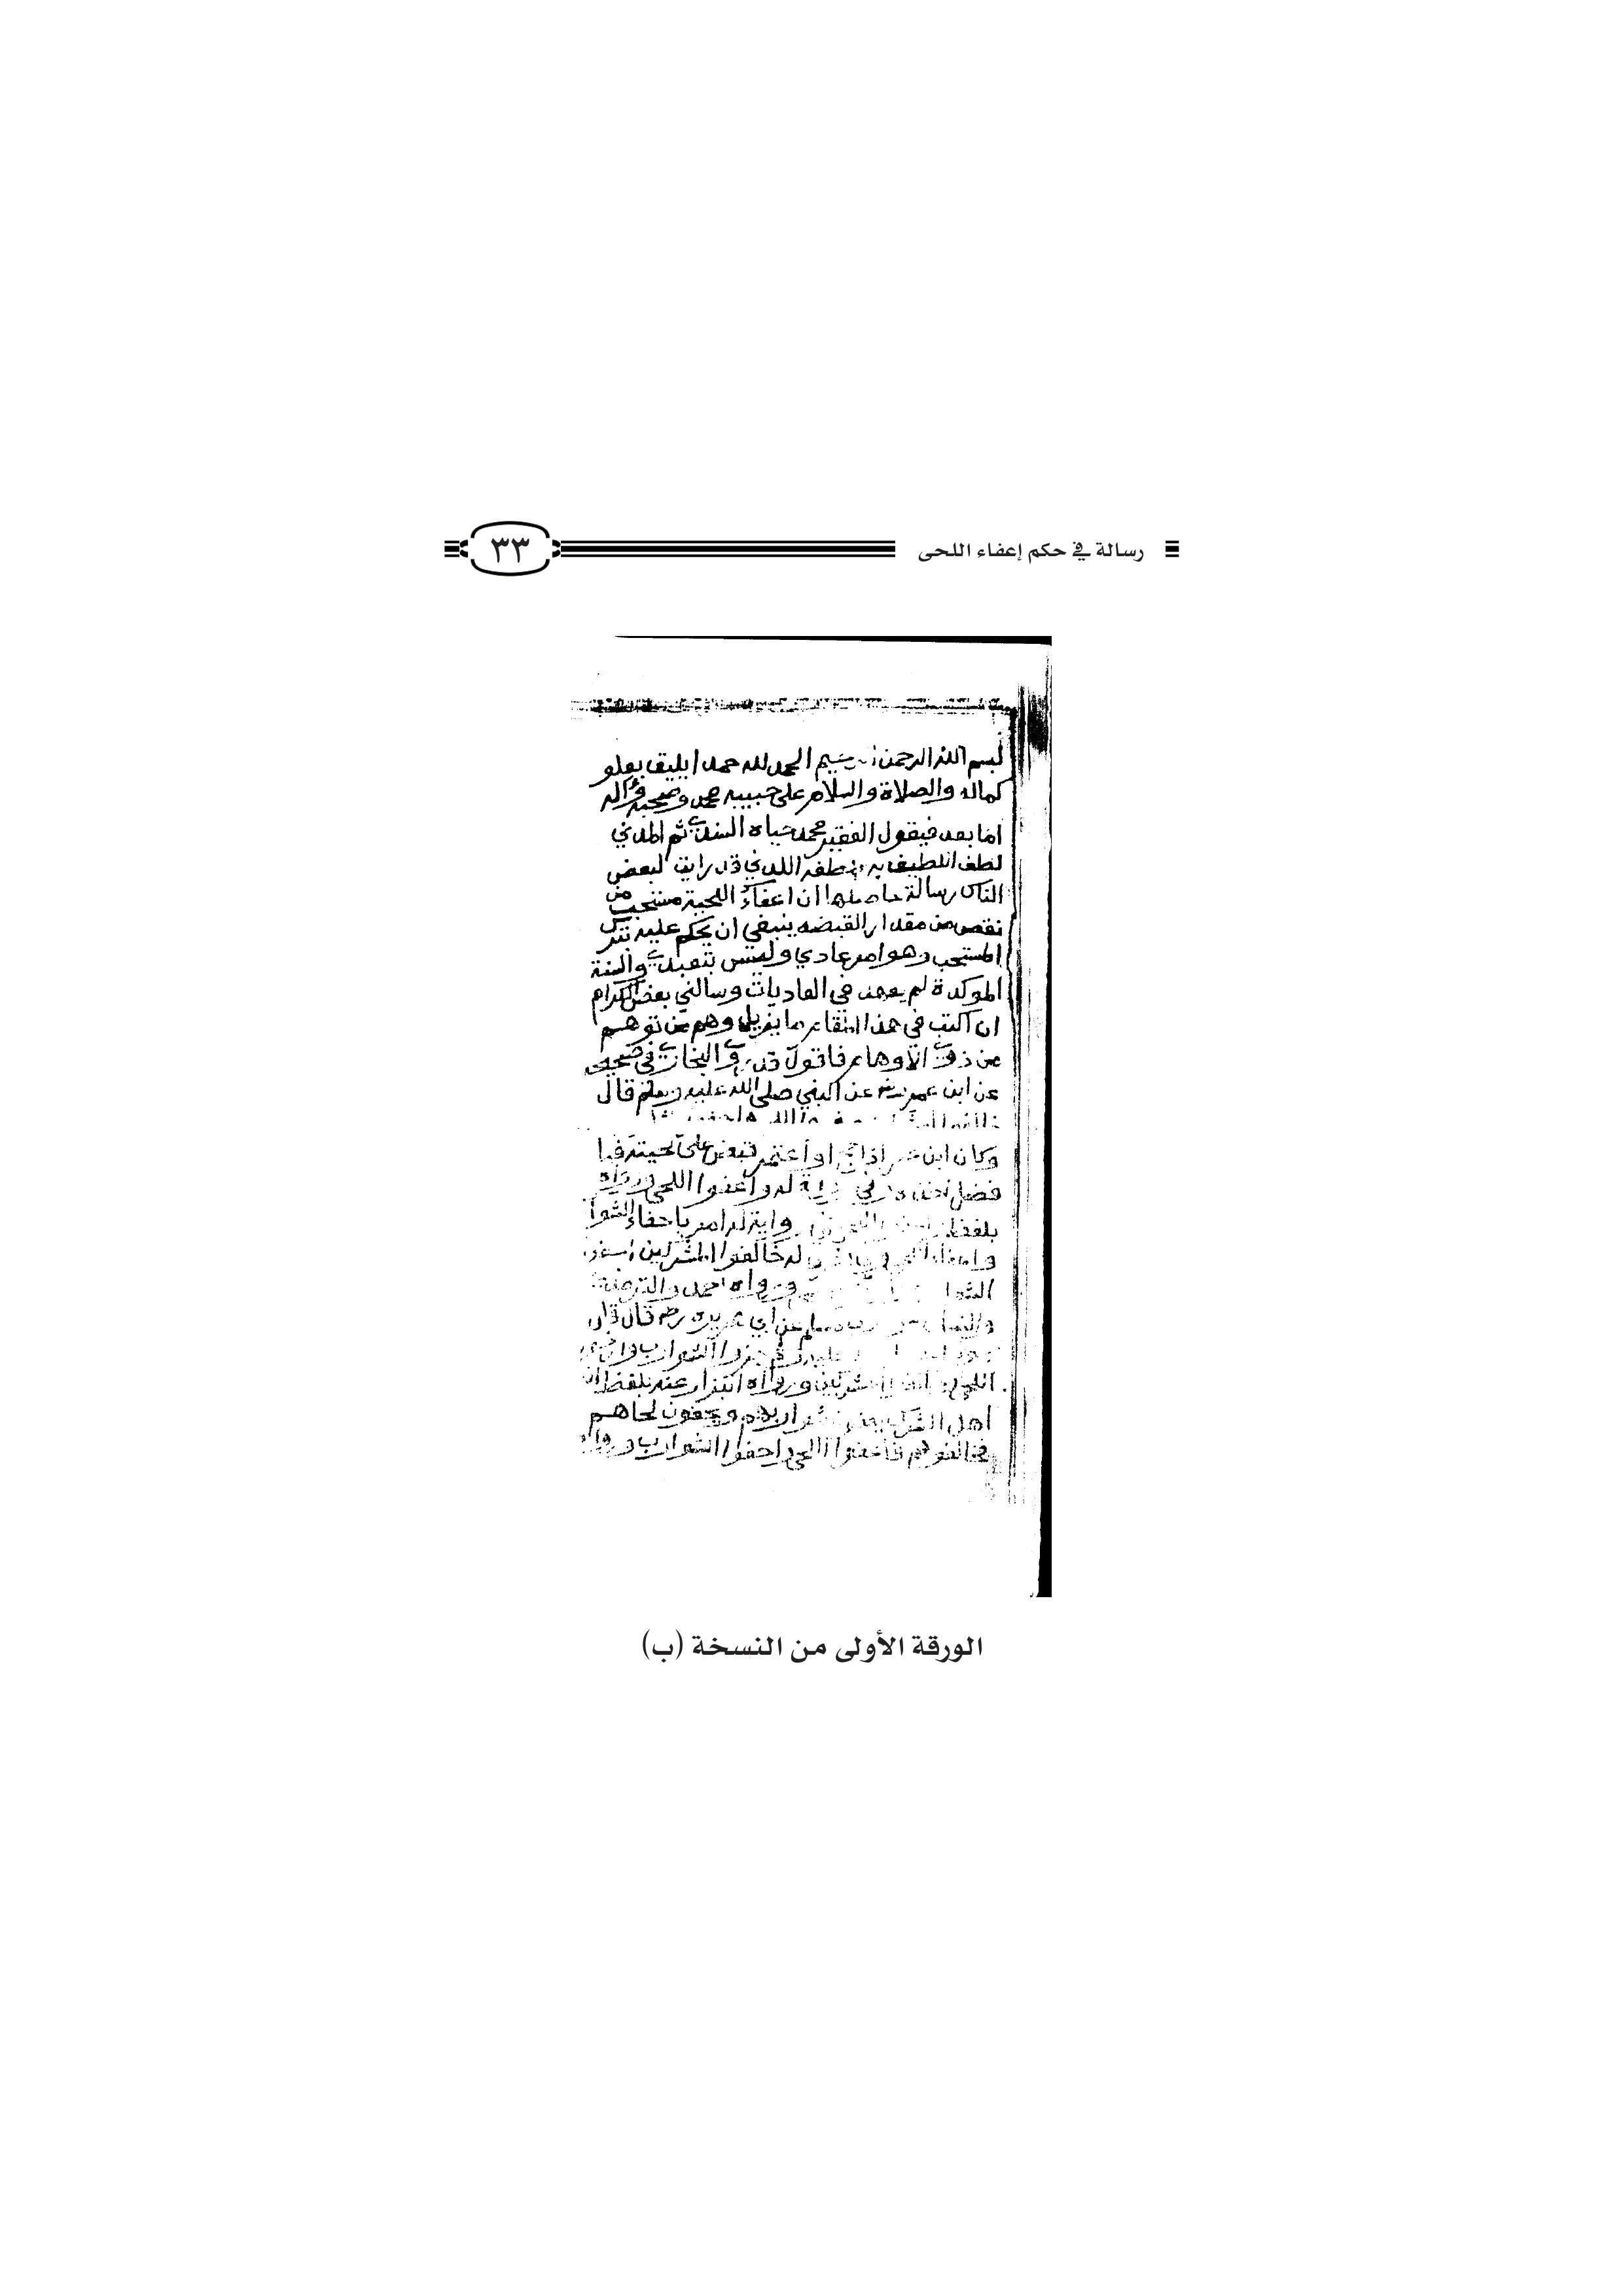 رسالة في حكم إعفاء اللحى
٣٣
بسم الله الرحمن الحمد لله حمدا يليق بعلو
كماله والصلاة والسلام على حبيبه محمد وصحبه وآله
اما بعد فيقول الفقير محمد حياه السندي ثم المدني
لطف اللطيف به بلطفه اللدني قد رايت لبعض
الناس رسالة حاصلها ان اعفاء اللحية مستحب من
نقص من مقدار القبضه ينبغي ان يحكم عليه بترك
المستحب وهو امر عادي وليس بتعبدي والسنة
الموكدة لم يعهد في العاديات وسالني بعض الكرام
ان اكتب في هذا المقام ما يزيل وهم من توهم
من ذوي الاوهام فاقول قد روي البخاري في صحيحه
عن ابن عمر عن النبي صلى الله عليه وسلم قال
وكان ابن عمر اذا حج او أعتمر قبض على لحيته فما
فضل اخذه وفي رواية له واعفوا اللحى ورواه
بلفظ رواية له امر باحفاء الشوا
له خالفوا المشركين
الشوا ورواه احمد والترمذي
والنسا عن أبي هريرة رضه قال قال
جزوا الشوارب
اللحى ورواه البزار عنه بلفظ ان
اهل الشرك يعفون شواربهم ويحفون لحاهم
فخالفوهم فأعفوا اللحى واحفوا الشوارب ورواه
الورقة الأولى من النسخة (ب)